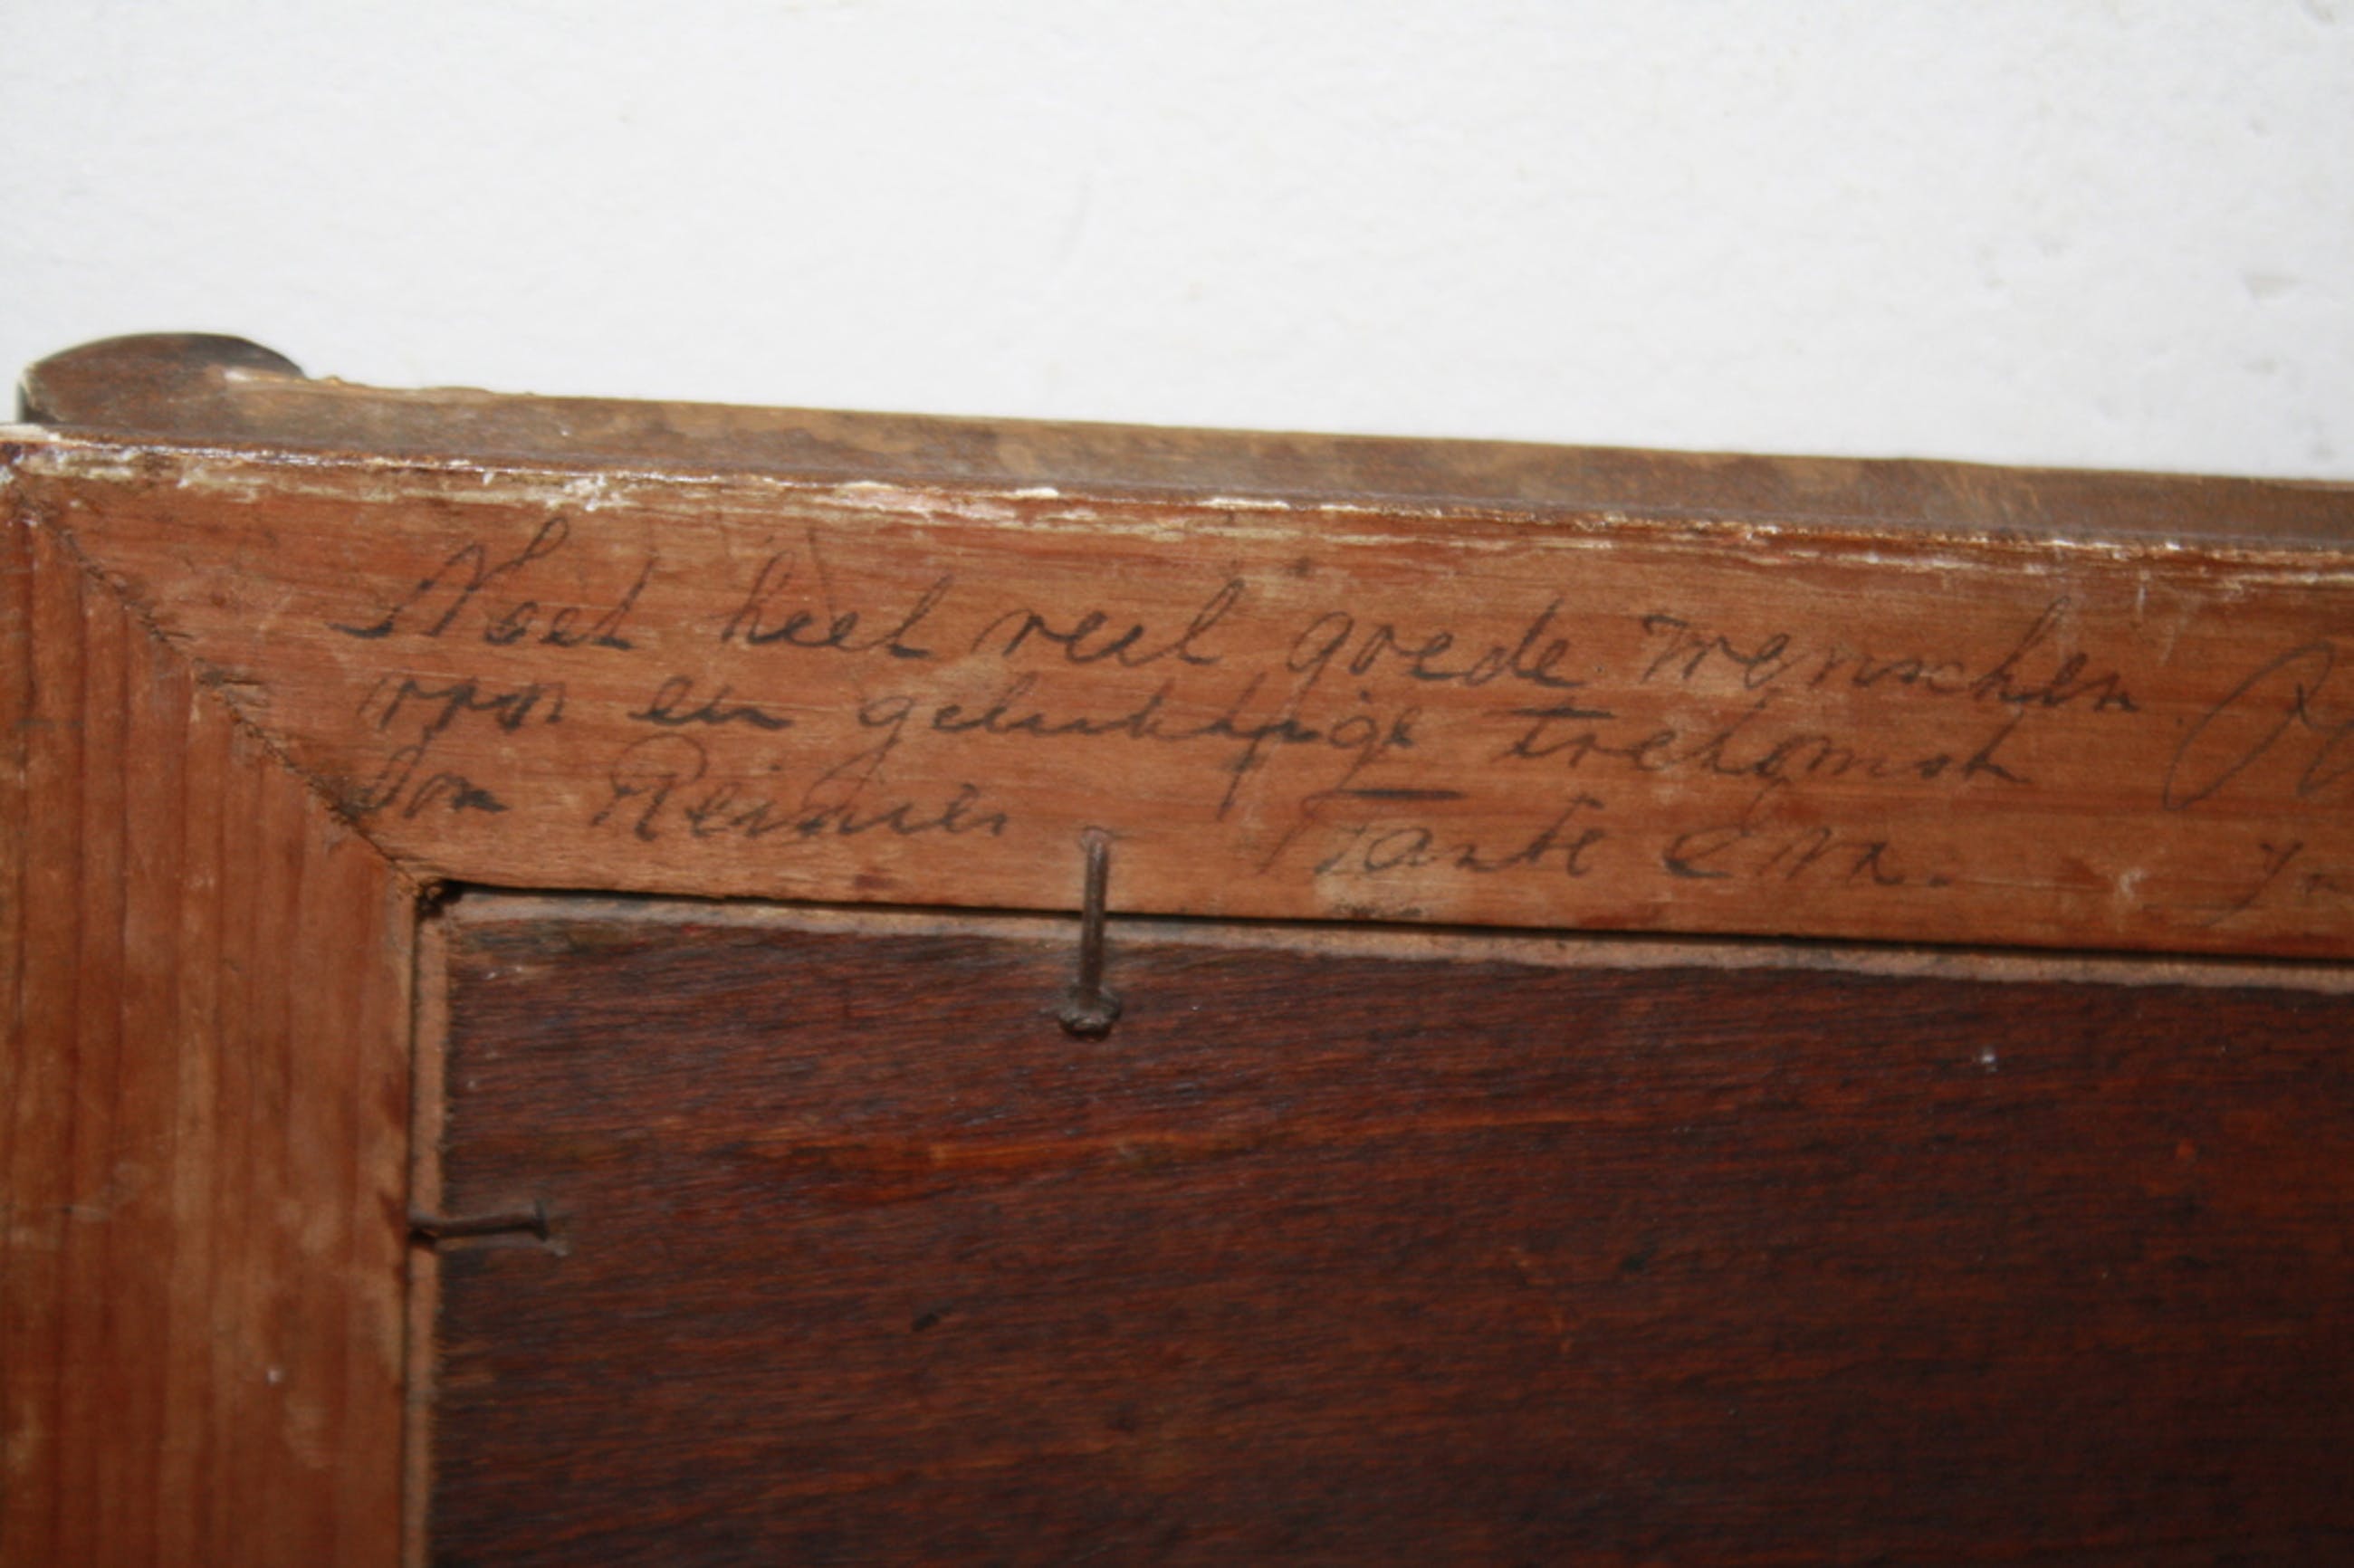 Met heel veel goede wenschen
voor een gelukkige toekomst
Oom Reinier Tante Eva.